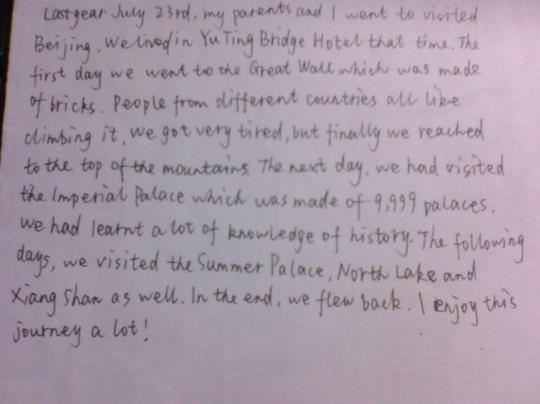 Last year July 23rd, my parents and I went to visited
Beijing. We lived in Yu Ting Bridge Hotel that time. The
first day we went to the Great Wall which was made
of bricks. People from different countries all like
climbing it. We got very tired, but finally we reached
to the top of the mountains. The next day, we had visited
the Imperial Palace which was made of 9,999 palaces.
We had learnt a lot of knowledge of history. The following
days, we visited the Summer Palace, North Lake and
Xiang Shan as well. In the end, we flew back. I enjoy this
journey a lot!